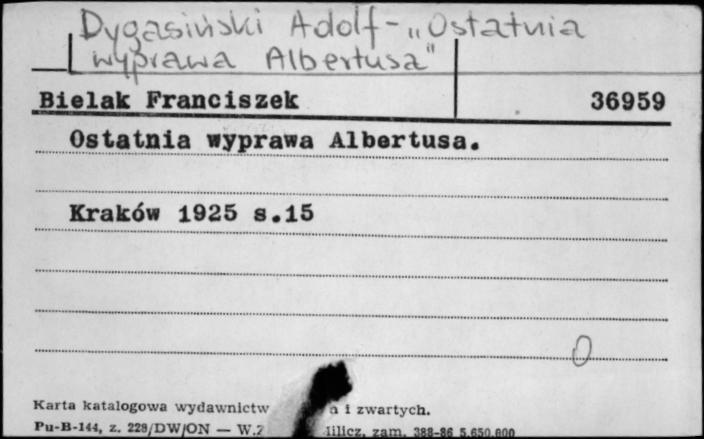 Dygasiński Adolf - „Ostatnia
wyprawa Albertusa"
Bielak Franciszek 36959
Ostatnia wyprawa Albertusa.
Kraków 1925 s.15
0
Karta katalogowa wydawnictw a i zwartych.
Pu-B-144, z. 229/DW/ON — W.Z zam. 388-86 5.650.000